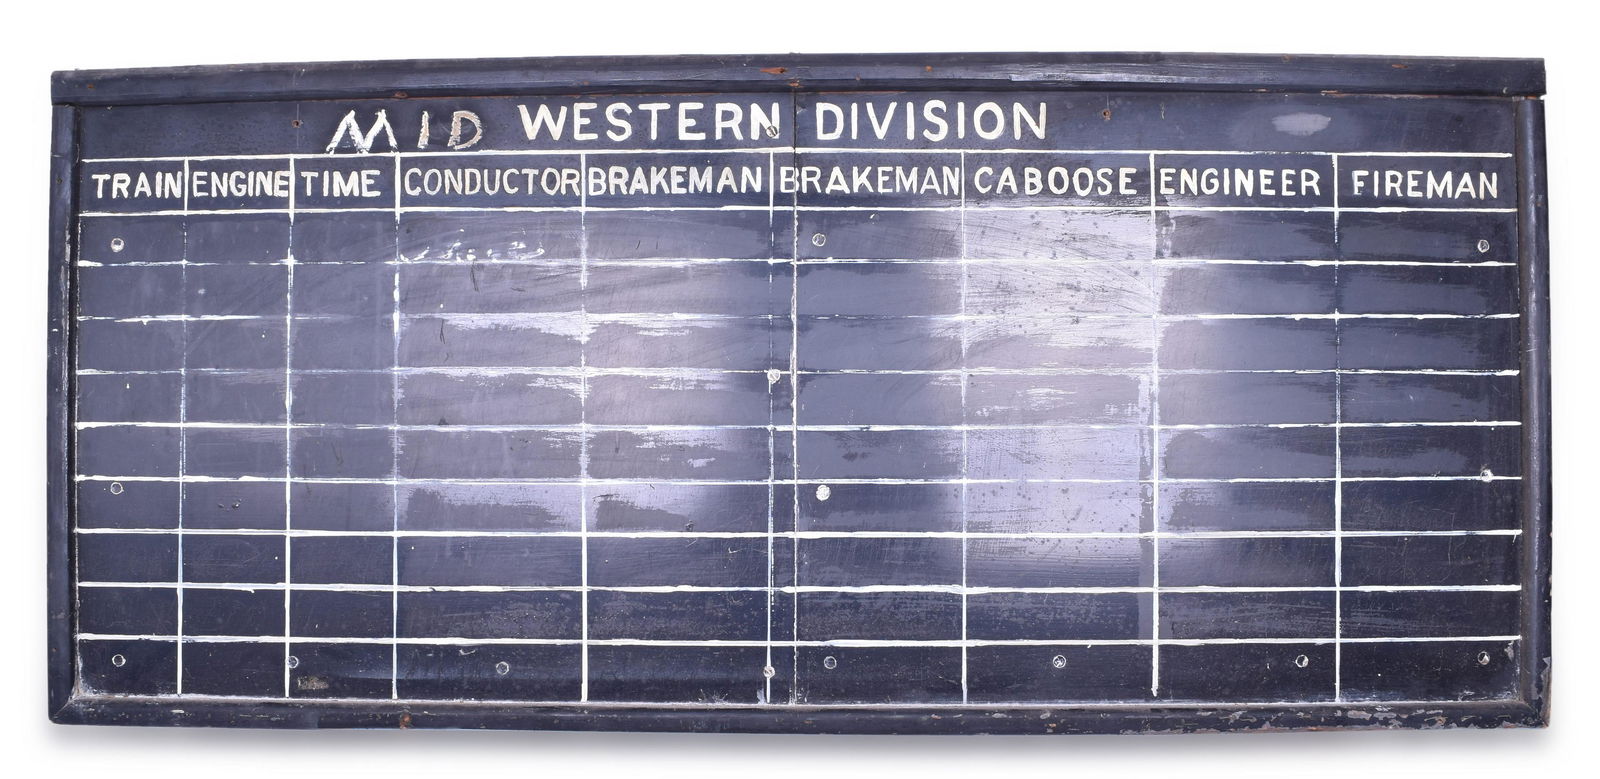 MID WESTERN DIVISION
TRAIN ENGINE TIME CONDUCTOR BRAKEMAN BRAKEMAN CABOOSE ENGINEER FIREMAN